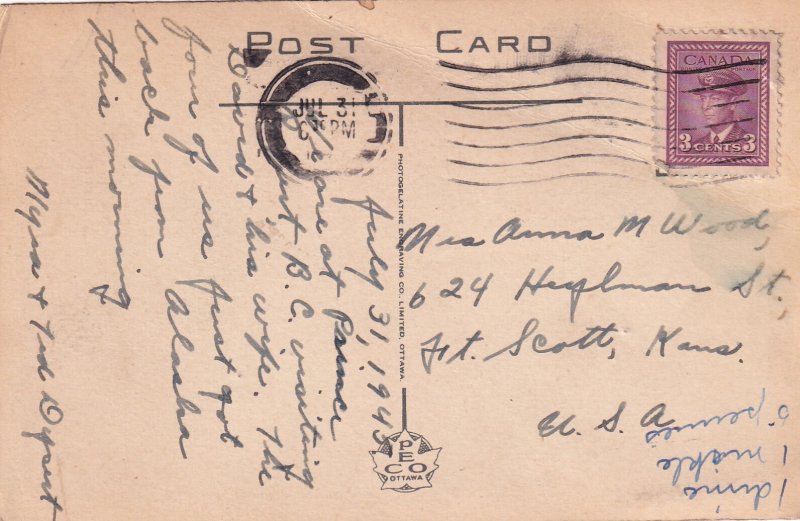 POST CARD
JUL 31
PM
CANADA
3 CENTS 3
July 31, 1943
We are at Prince
Rupert B.C. visiting
David & his wife. The
four of us just got
back from Alaska
this morning
Myra & Ted
PHOTOGELATINE ENGRAVING CO., LIMITED, OTTAWA.
Mrs Anna M Wood,
624 Heylman St.,
Ft. Scott, Kans.
U.S.A.
PECO
OTTAWA
1 dime
1 nickle
5 pennies